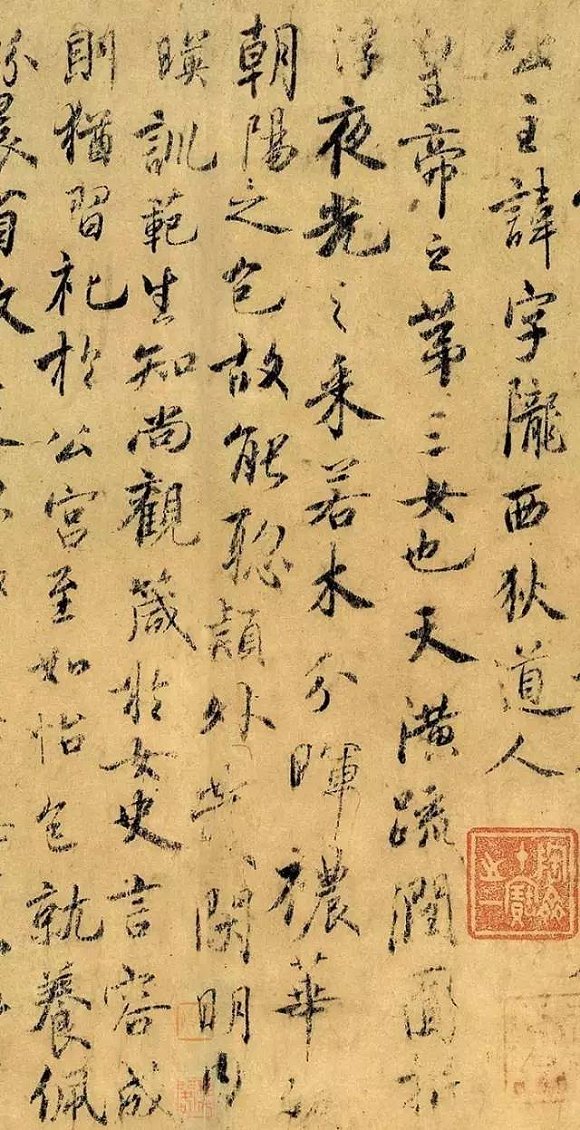 公主諱字隴西狄道人
皇帝之第三女也天潢疏潤圓折
浮夜光之采若木分暉襛華
朝陽之色故能聰穎外發閑明內
暎訓範生知尚觀箴於女史言容成
則猶習礼於公宮至如怡色就養佩